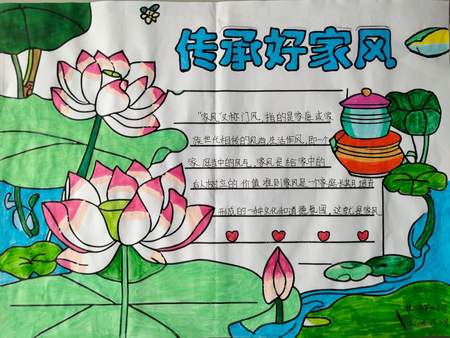 传承好家风
"家风"又称门风，指的是家庭或家
族世代相传的风尚，生活作风，即一个
家庭当中的风气，家风是给家中的
后人树立的价值准则家风是一个家庭长期培育
形成的一种文化和道德氛围，这就是家风